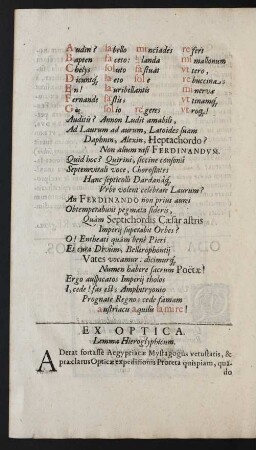 Audin? la bello minciades refert
Bapten fa ceto: landa mimallonum
Chelys soluto fastuat vttero,
Dicuntq; la eto sole rebucina
En! lauribellantis minervæ
Fernande fastis vt tinamq,
G solio regeres vtroq,!
Auditis? Annon Ludit amabilis,
Ad Laurum ad aurum, Latoides suam
Daphnen, Alexin, Heptachordo?
Non alium nisi FERDINANDVM.
Quid hoc? Quirini, siccine consonâ
Septemvirali voce, Choroflites
Hanc septicolli Dardanâq,
Vrbe volent celebrate Laurum?
An FERDINANDO non prius aurei
Obtemperabunt pegmata sideris,
Quàm Septichordis Cæsar astris
Imperij superabit Orbes?
O! Entheati quàm benè Pieri
Et cura Divûm, Bellerophontij
Vates vocamur: dicimurq́,
Numen habere sacrum Poëtæ!
Ergo auspicatos Imperij tholos
I, cede! fas est: Amphitryonio
Prognate Regno: cede famam
austriacæ aquilæ la mi re!
EX OPTICA.
Lemma Hieroglyphicum.
Aderat fortasse Aegyptiacæ Mystagogus vetustatis, &
præclarus Opticæ expeditionis Proreta quispiam, qua-
do